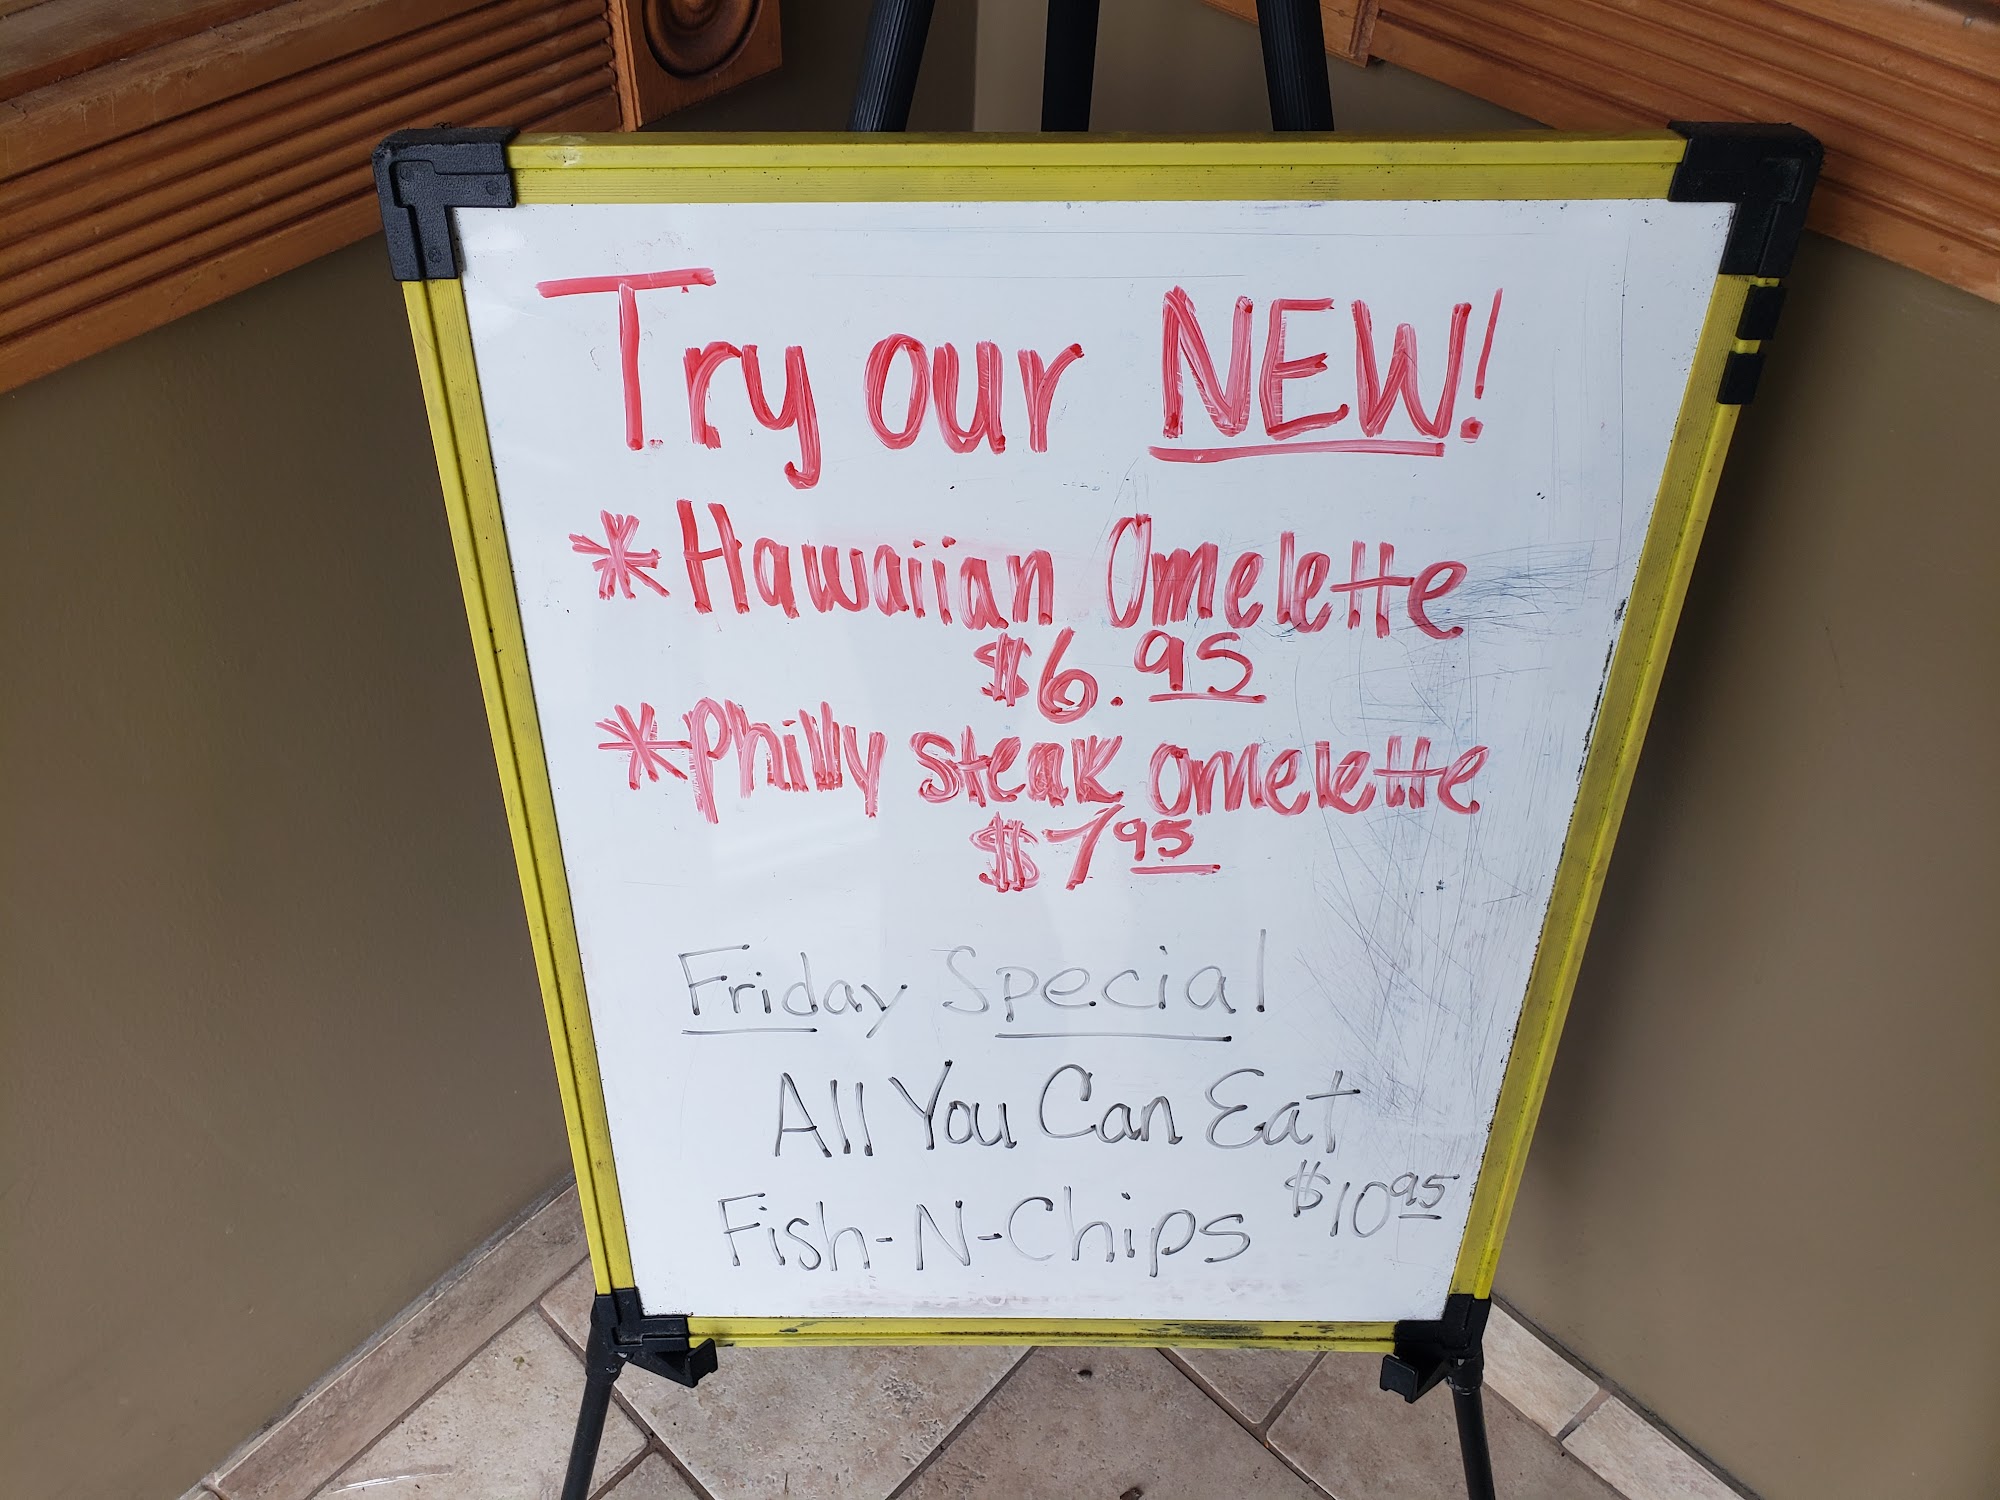 Try our NEW!
*Hawaiian Omelette
$6.95
*Philly steak omelette
$7 95
Friday Special
All You Can Eat
Fish-N-Chips $10 95